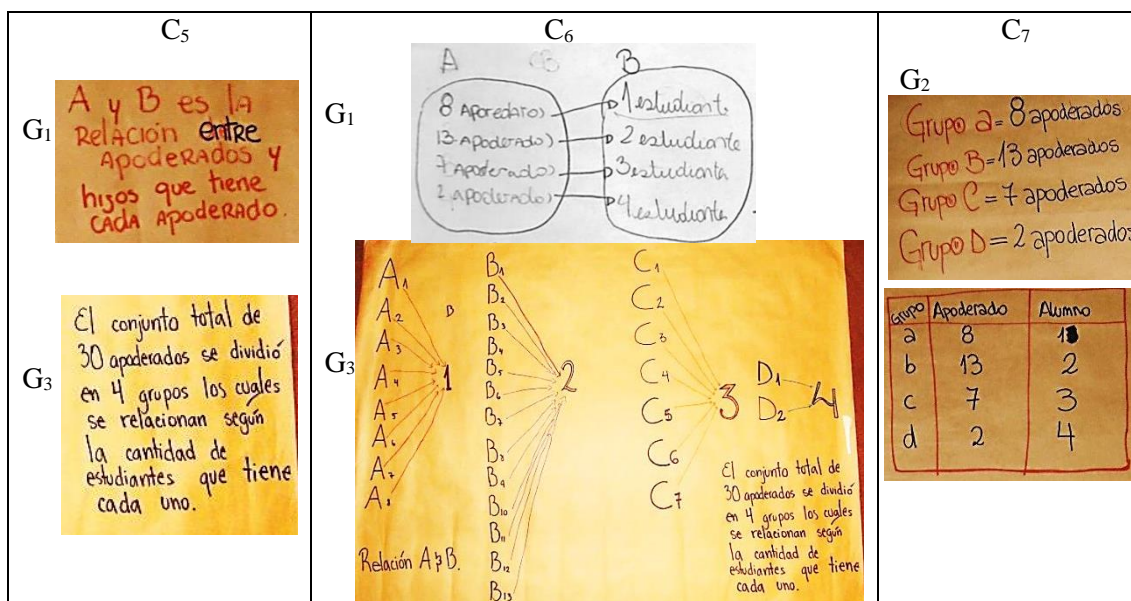 C5
G1
A y B es la
Relación entre
Apoderados y
hijos que tiene
cada apoderado.
G3
El conjunto total de
30 apoderados se dividió
en 4 grupos los cuales
se relacionan según
la cantidad de
estudiantes que tiene
cada uno.
C6
G1
A B
8 1 estudiante
13 Apoderado) 2 estudiante
7 Apoderados) 3 estudianta
2 (Apoderado) 4 estudianta
G3
A1
A2
A3
A4
A5
A6
A7
A8
1
B1
B2
B3
B4
B5
B6
B7
B8
B9
B10
B11
B12
B13
2
C1
C2
C3
C4
C5
C6
C7
3
D1
D2
4
Relación A B.
El conjunto total de
30 apoderados se dividió
en 4 grupos los cuales
se relacionan según
la cantidad de
estudiantes que tiene
cada uno.
C7
G2
Grupo a = 8 apoderados
Grupo B = 13 apoderados
Grupo C = 7 apoderados
Grupo D = 2 apoderados
Grupo Apoderado Alumno
a 8 1
b 13 2
c 7 3
d 2 4